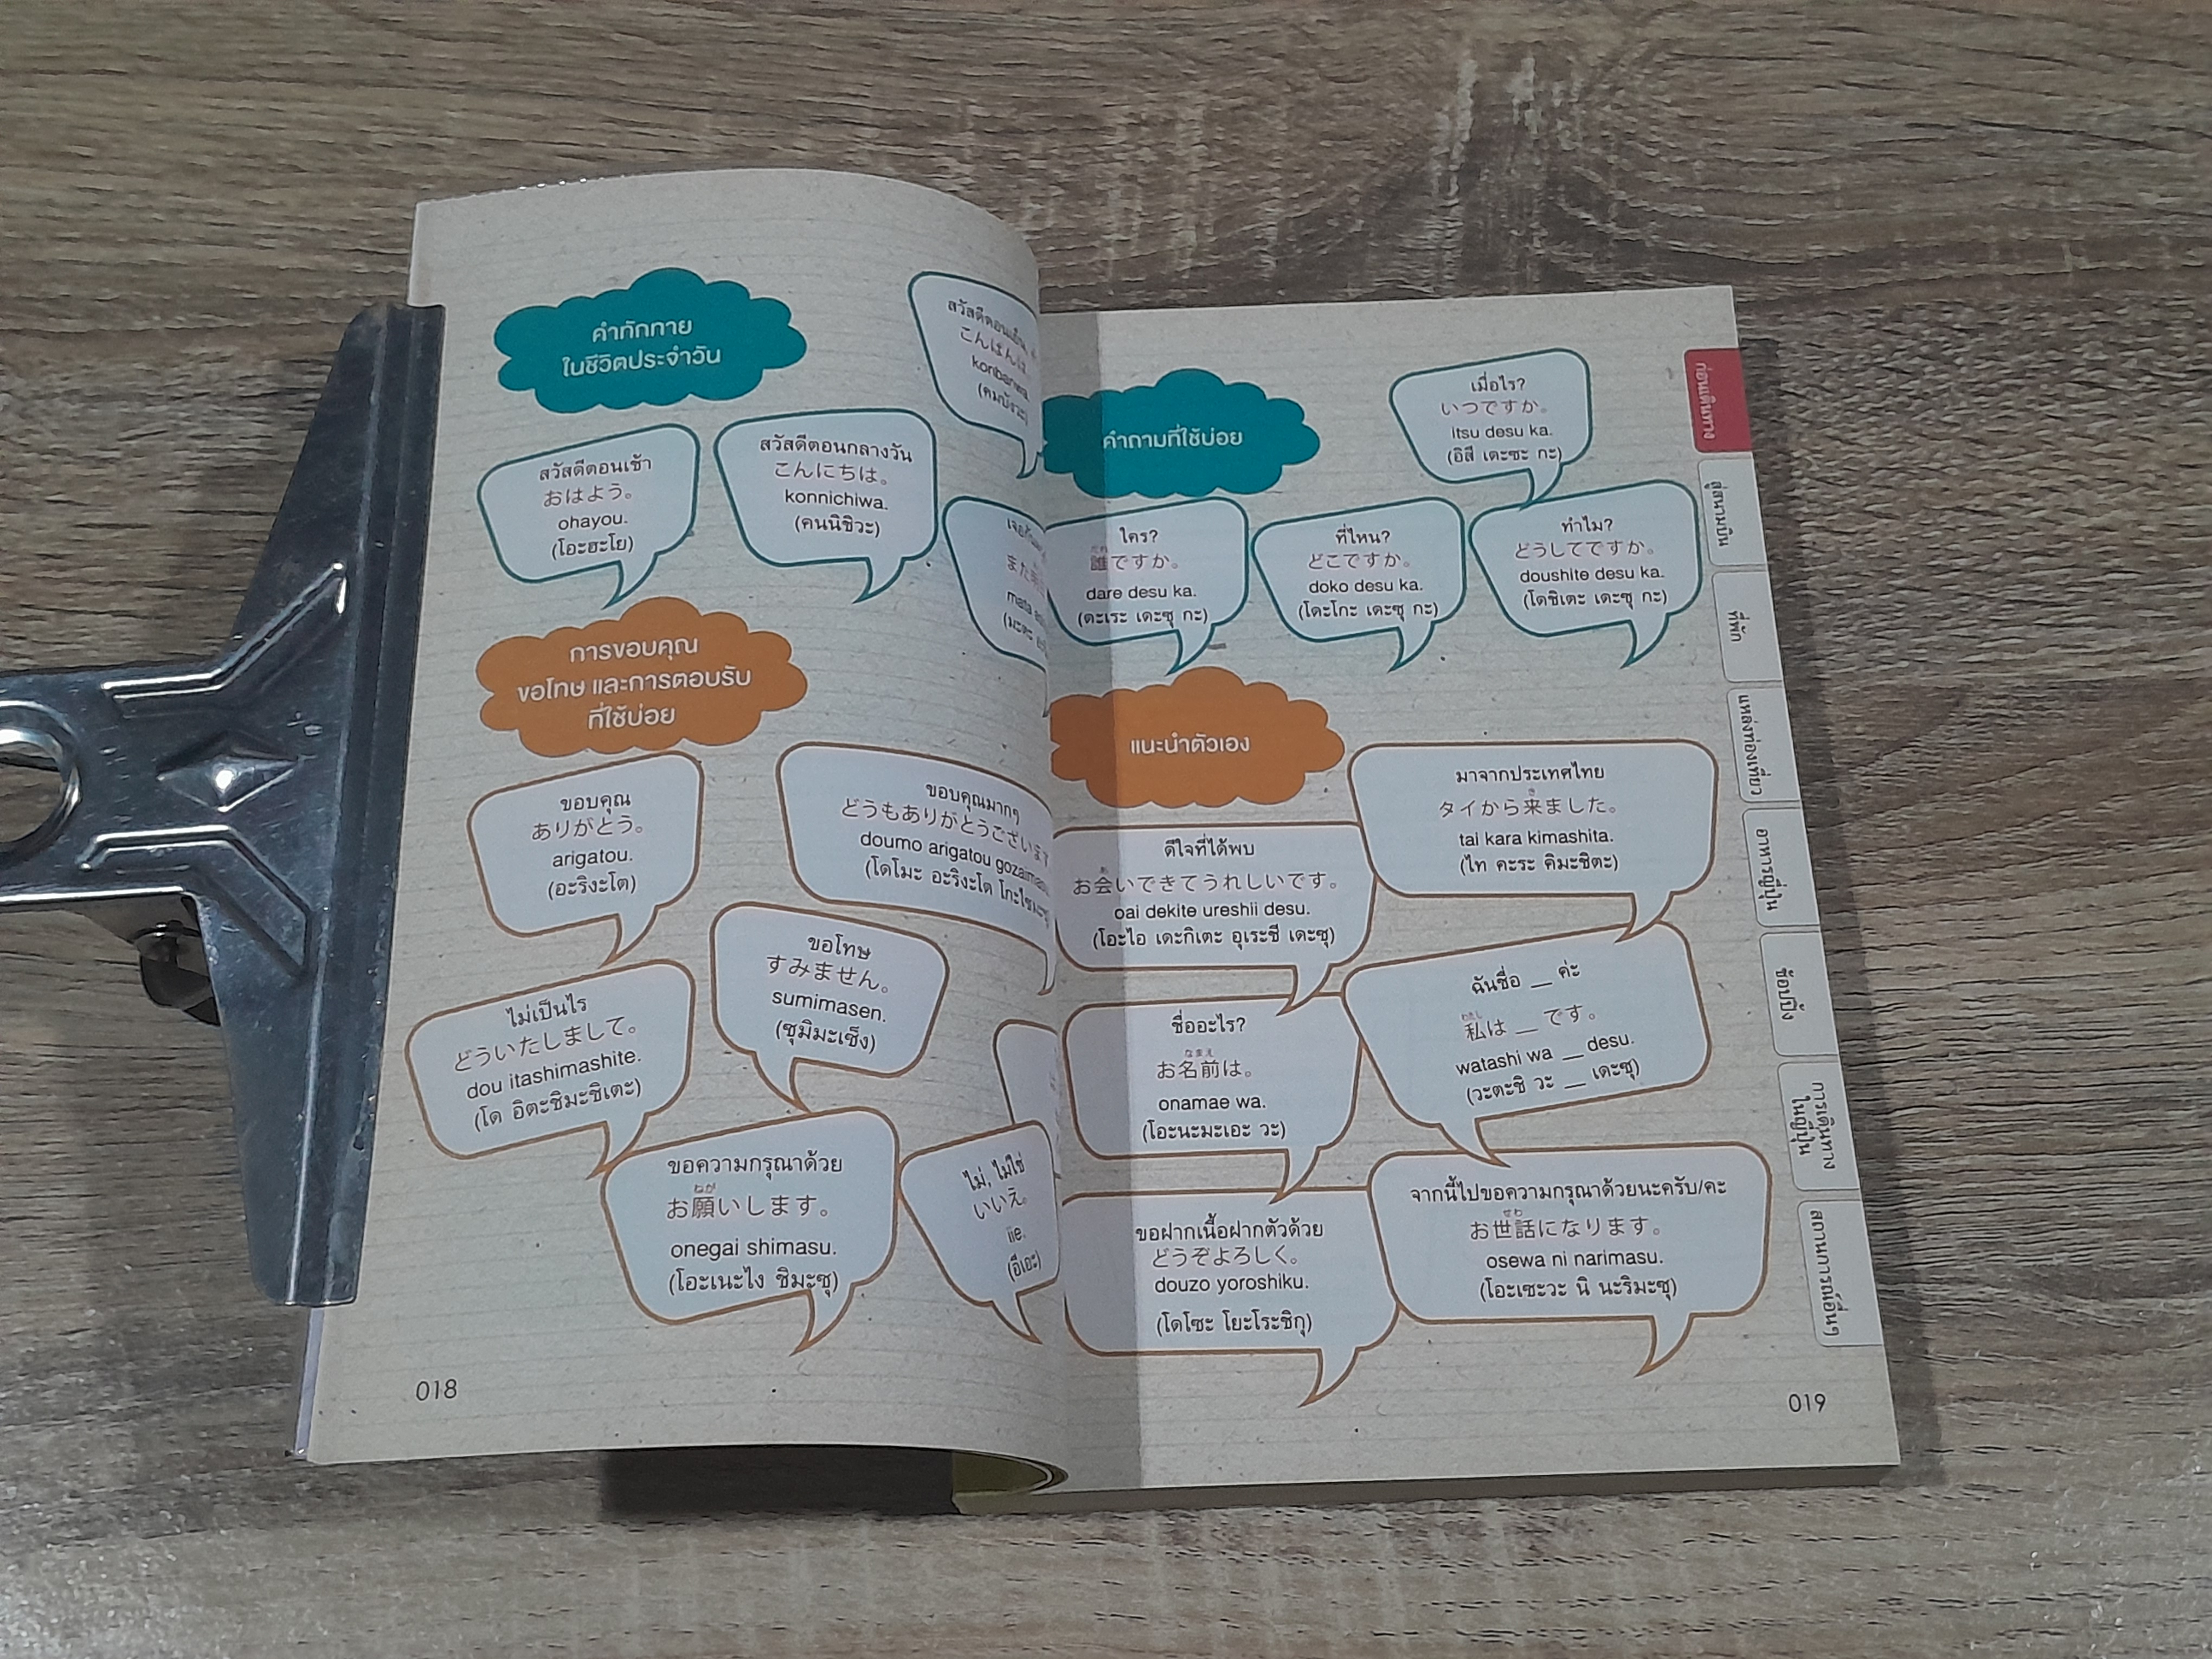 คำทักทาย
ในชีวิตประจำวัน
สวัสดีตอนเช้า
おはよう。
ohayou.
(โอะฮะโย)
สวัสดีตอนกลางวัน
こんにちは。
konnichiwa.
(คนนิชิวะ)
こんばんは
konbanwa.
(คมบังวะ)
また
mata
(มะตะ
การขอบคุณ
ขอโทษ และการตอบรับ
ที่ใช้บ่อย
ขอบคุณ
ありがとう。
arigatou.
(อะริงะโต)
ขอบคุณมากๆ
どうもありがとうございます
doumo arigatou gozaimasu
(โดโมะ อะริงะโต โกะไซมะซุ
ขอโทษ
すみません。
sumimasen.
(ซุมิมะเซ็ง)
ไม่เป็นไร
どういたしまして。
dou itashimashite.
(โด อิตะชิมะชิเตะ)
ขอความกรุณาด้วย
ねが
お願いします。
onegai shimasu.
(โอะเนะไง ชิมะซุ)
ไม่, ไม่ใช่
いいえ。
iie.
(อีเอะ)
018
คำถามที่ใช้บ่อย
เมื่อไร?
いつですか。
itsu desu ka.
(อิสึ เดะซะ กะ)
ใคร?
だれ
誰ですか。
dare desu ka.
(ดะเระ เดะซุ กะ)
ที่ไหน?
どこですか。
doko desu ka.
(โดะโกะ เดะซุ กะ)
ทำไม?
どうしてですか。
doushite desu ka.
(โดชิเตะ เดะซุ กะ)
แนะนำตัวเอง
มาจากประเทศไทย
き
タイから来ました。
tai kara kimashita.
(ไท คะระ คิมะชิตะ)
ดีใจที่ได้พบ
あ
お会いできてうれしいです。
oai dekite ureshii desu.
(โอะไอ เดะกิเตะ อุเระชี เดะซุ)
ฉันชื่อ __ ค่ะ
わたし
私は __ です。
watashi wa __ desu.
(วะตะชิ วะ __ เดะซุ)
ชื่ออะไร?
なまえ
お名前は。
onamae wa.
(โอะนะมะเอะ วะ)
จากนี้ไปขอความกรุณาด้วยนะครับ/คะ
せわ
お世話になります。
osewa ni narimasu.
(โอะเซะวะ นิ นะริมะซุ)
ขอฝากเนื้อฝากตัวด้วย
どうぞよろしく。
douzo yoroshiku.
(โดโซะ โยะโระชิกุ)
ก่อนเดินทาง
สู่สนามบิน
ที่พัก
แหล่งท่องเที่ยว
อาหารญี่ปุ่น
ช้อปปิ้ง
การเดินทาง
ในญี่ปุ่น
สถานการณ์อื่นๆ
019